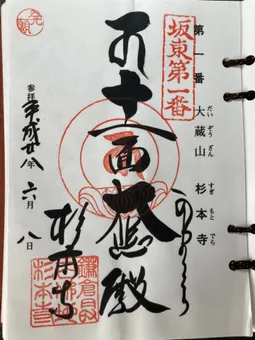 第一番 大蔵山 杉本寺
だいぞうざん すぎもとでら
坂東第一番
十一面大悲殿
杉本寺
参拝 平成廿八年 六月 八日
鎌倉
杉本寺